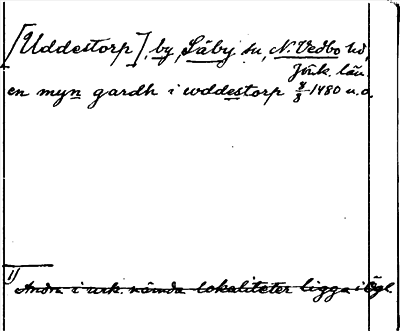 [Uddestorp], by, Säby sn, N. Vedbo hd,
Jönk. län.
en myn gardh i wddestorp 8/8 1480 u.o.
1)
Andra i urk. nämda lokaliteter ligga i Ögl.